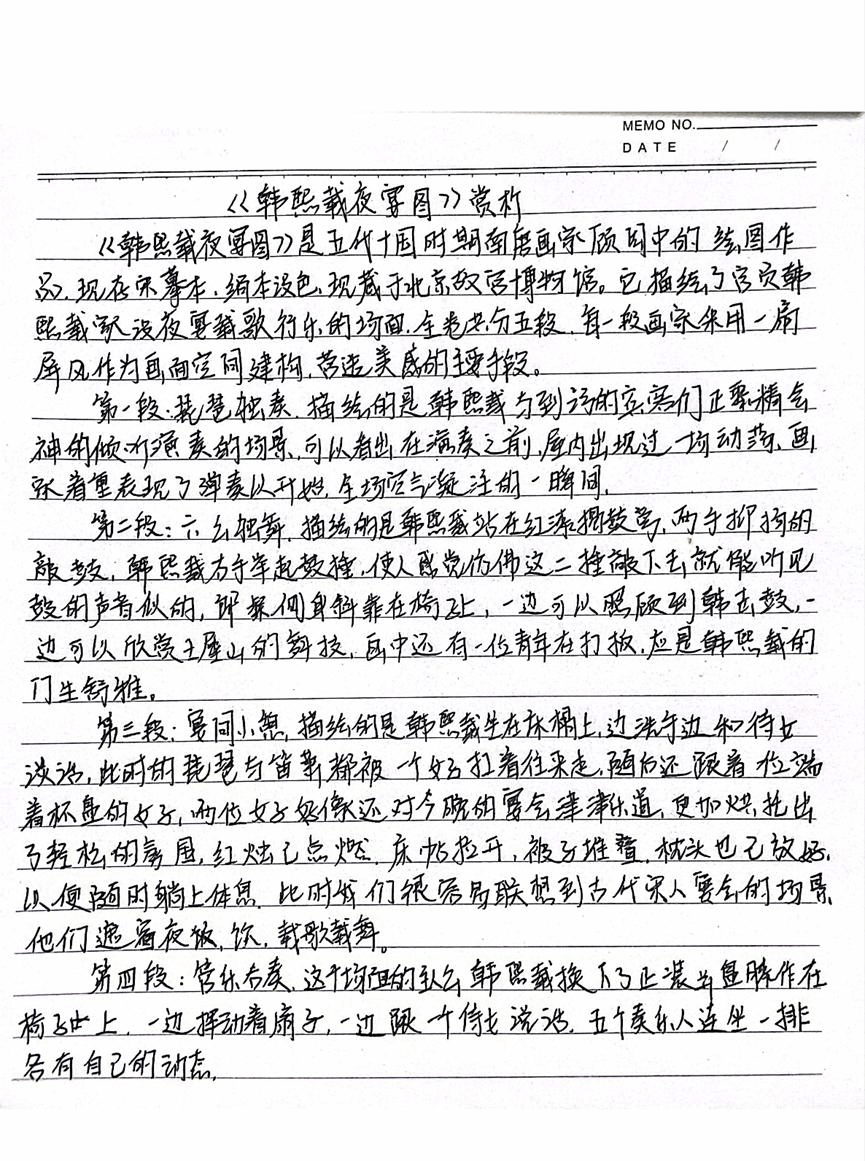 MEMO NO.
DATE / /
《韩熙载夜宴图》赏析
《韩熙载夜宴图》是五代十国时期南唐画家顾闳中的绘图作
品,现存宋摹本,绢本设色,现藏于北京故宫博物馆。它描绘了官员韩
熙载家设夜宴载歌行乐的场面,全卷共分五段,每一段画家采用一扇
屏风作为画面空间建构,营造美感的主要手段。
第一段:琵琶独奏,描绘的是韩熙载与到访的宾客们正聚精会
神的倾听演奏的场景,可以看出在演奏之前,屋内出现过一场动荡,画
家着重表现了弹奏从开始,全场空气凝注的一瞬间,
第二段:六幺独舞,描绘的是韩熙载站在红漆揭鼓旁,两手抑扬的
敲鼓,韩熙载右手举起鼓捶,使人感觉仿佛这一捶敲下去,就能听见
鼓的声音似的,郎粲侧身斜靠在椅子上,一边可以照顾到韩击鼓,一
边可以欣赏王屋山的舞技,画中还有一位青年在打板,应是韩熙载的
门生舒雅。
第三段:宴间小憩,描绘的是韩熙载坐在床榻上,边洗手边和侍女
谈话,此时的琵琶与笛箫都被一个女子扛着往来走,随后还跟着一位端
着杯盘的女子,两位女子好像还对今晚的宴会津津乐道,更加烘托出
了轻松的氛围,红烛已点燃,床帖拉开,被子堆叠,枕头也已放好,
以便随时躺上休息,此时我们很容易联想到古代宋人宴会的场景,
他们通宵夜饭,饮,载歌载舞。
第四段:管乐合奏,这个场面的韩熙载换下了正装,盘膝作在
椅子上,一边挥动着扇子,一边跟一个侍女说话,五个奏乐人连坐一排
各有自己的动态,